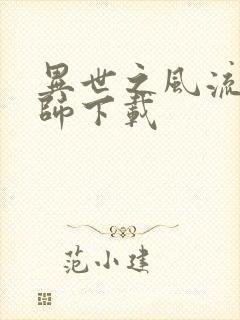 異世之風流
師下載
范小建